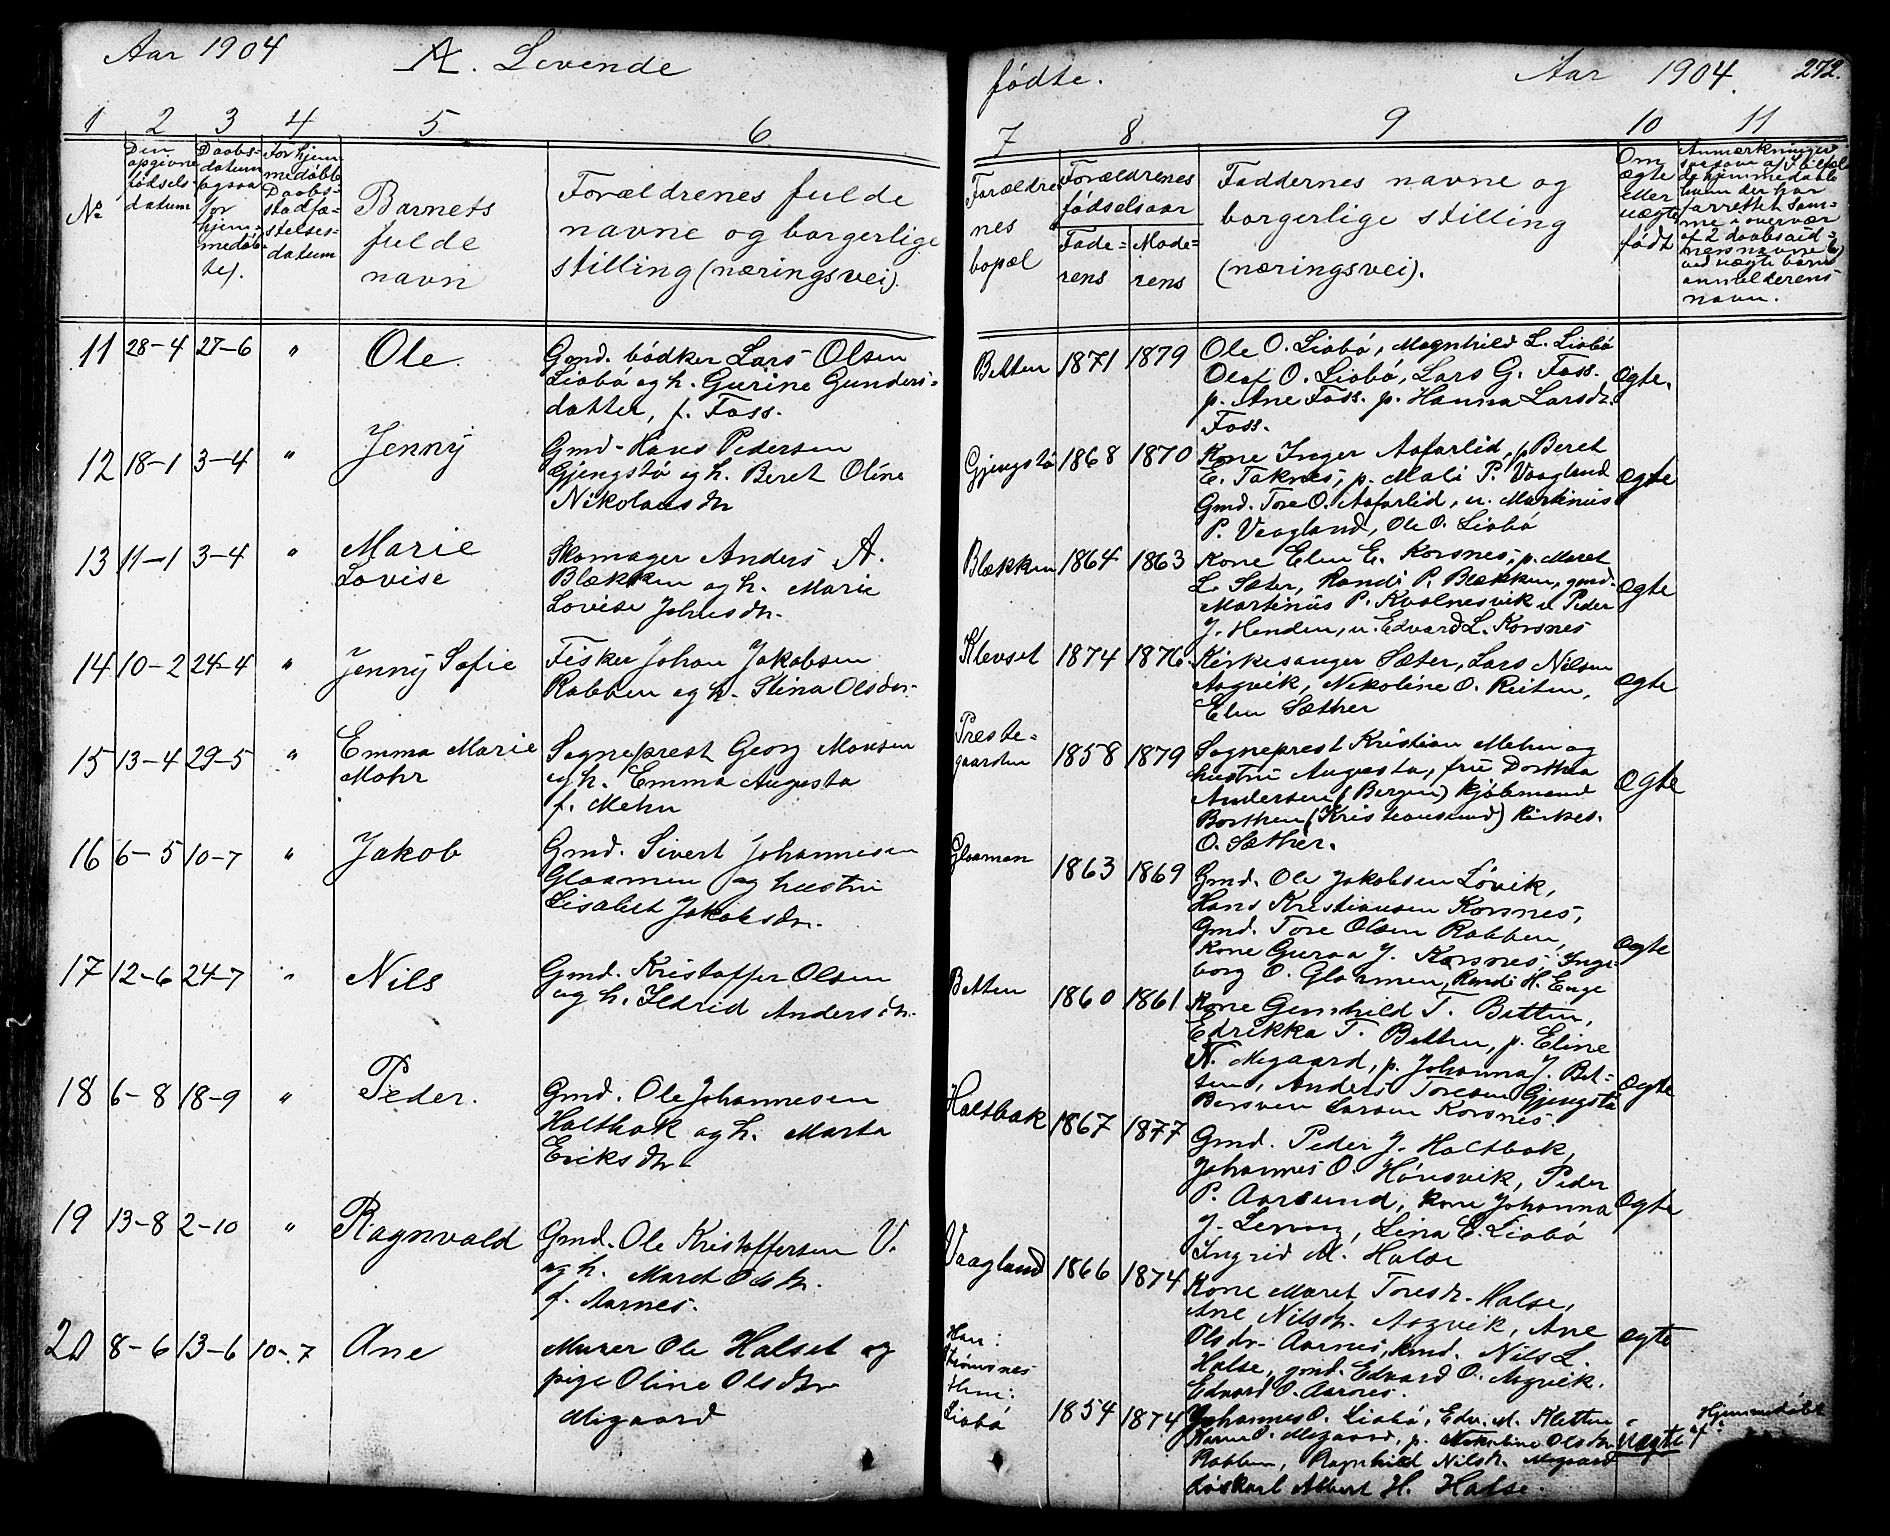 Aar 1904 A. Levende
fødte. Aar 1904. 272.
1 2 3 4 5 6
7 8 9 10 11
No
Den
opgivne
fødsels-
datum
Daabs-
datum
ogsaa
for
hjem-
medøb-
te).
For hjem
medøbte
Daabs-
stadfæ-
stelses-
datum
Barnets
fulde
navn
Forældrenes fulde
navne og borgerlige
stilling (næringsvei).
Forældre
nes
bopæl
Forældrenes
fødselsaar
Fade-
rens
Mode-
rens
Faddernes navne og
borgerlige stilling
(næringsvei).
Om
ægte
eller
uægte
født
Anmærkninger
navn.
11 28-4 27-6 " Ole.
Gmd. bødker Lars Olsen
Liabø og h. Gurine Gunders-
datter, f. Foss.
Betten 1871 1879
Ole O. Liabø, Magnhild L. Liabø
Olaf O. Liabø, Lars G. Foss.
p. Ane Foss. p. Hanna Larsdr.
Foss.
ægte.
12 18-1 3-4 " Jenny
Gmd. Hans Pedersen
Gjengstø og h. Beret Oline
Nikolausdr
Gjengstø 1868 1870
Kone Inger Aafarlid, p. Beret
E. Taknes, p. Mali P. Vaagland
Gmd. Tore O. Aafarlid, u. Martinus
P. Vaagland, Ole O. Liabø
ægte
13 11-1 3-4 " Marie
Lovise
Skomager Anders A.
Blækken og h. Marie
Lovise Johnsdr.
Blækken 1864 1863
Kone Elen E. Korsnes, p. Maret
L. Sæter, Randi P. Blækken, gmd.
Martinus P. Kvalnesvik u. Peder
J. Henden, u. Edvard L. Korsnes
ægte
14 10-2 24-4 " Jenny Sofie
Fisker Johan Jakobsen
Rabben og h. Stina Olsdr.
Klevset 1874 1876
Kirkesanger Sæter, Lars Nilsen
Aagvik, Nikoline O. Reiten,
Elen Sæther
ægte
15 13-4 29-5 " Emma Marie
Mohr
Sogneprest Georg Monsen
og h. Emma Augusta
f. Mehn
Preste-
gaarden 1858 1879
Sogneprest Kristian Mehn og
hustru Augusta, fru Dorthea
Andersen (Bergen) kjøbmand
Borthen (Kristiansund) Kirkes.
O. Sæther.
ægte
16 6-5 10-7 " Jakob
Gmd. Sivert Johannesen
Glaamen og hustru
Lisabet Jakobsdr.
Glaamen 1863 1869
Gmd. Ole Jakobsen Løvik,
Hans Kristiansen Korsnes,
Gmd. Tore Olsen Rabben,
Kone Guraa J. Korsnes, Inge-
borg O. Glaamen, Randi H. Enge
ægte
17 12-6 24-7 " Nils
Gmd. Kristoffer Olsen
og h. Ildrid Andersdr.
Betten 1860 1861
Kone Gunhild T. Betten,
Edrikka T. Betten, p. Eline
N. Megaard, p. Johanna J. Bet-
ten, Anders Toresen Gjengstø
Bersven Larsen Korsnes.
ægte
18 6-8 18-9 " Peder.
Gmd. Ole Johannesen
Holtbak og h. Marta
Eriksdr.
Holtbak 1867 1877
Gmd. Peder J. Holtbak,
Johannes O. Hønsvik, Peder
P. Aarsund, kone Johanna
J. Lervig, Lina E. Liabø
Ingrid M. Halse
ægte
19 13-8 2-10 " Ragnvald
Gmd. Ole Kristoffersen V.
og h. Maret Olsdr.
f. Aarnes.
Vaagland 1866 1874
Kone Maret Toresdr. Halse,
Ane Nilsdr. Aagvik, Ane
Olsdr. Aarnes, gmd. Nils L.
Halse, gmd. Edvard O. Aagvik.
Edvard O. Aarnes.
ægte
20 8-6 13-6 10-7 Ane
Murer Ole Halset og
pige Oline Olsdtr
Megaard
Han:
Strømsnes
Hun:
Liabø 1854 1874
Johannes O. Liabø, Edv. M. Kletten
Karen O. Megaard, p. Nikoline Olsdr.
Rabben, Ragnhild Nilsdr. Megaard
løskarl Albert H. Halse.
uægte
Hjemmedøbt
af